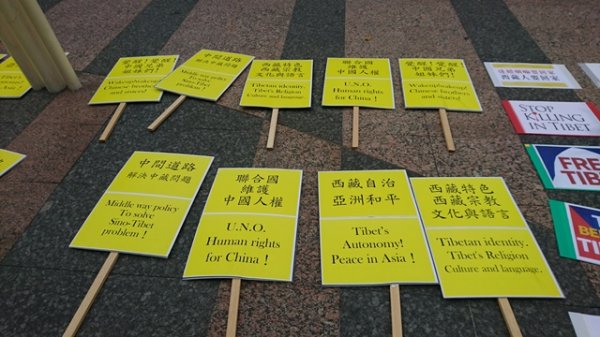 覺醒！覺醒！
中國兄弟
姐妹們！
Wakeup!wakeup!
Chinese brothers
中間道路
解決中藏問題
Middle way policy
To solve
Sino-Tibet
problem !
西藏特色
西藏宗教
文化與語言
Tibetan identity.
Tibet's Religion
Culture and language.
聯合國
維護
中國人權
U.N.O.
Human rights
for China !
覺醒！覺醒！
中國兄弟
姐妹們！
Wakeup!wakeup!
Chinese brothers
and sisters!
西藏人要回家
STOP
KILLING
IN TIBET
中間道路
解決中藏問題
Middle way policy
To solve
Sino-Tibet
problem !
聯合國
維護
中國人權
U.N.O.
Human rights
for China !
西藏自治
亞洲和平
Tibet's
Autonomy!
Peace in Asia !
西藏特色
西藏宗教
文化與語言
Tibetan identity.
Tibet's Religion
Culture and language.
FREE
TIB